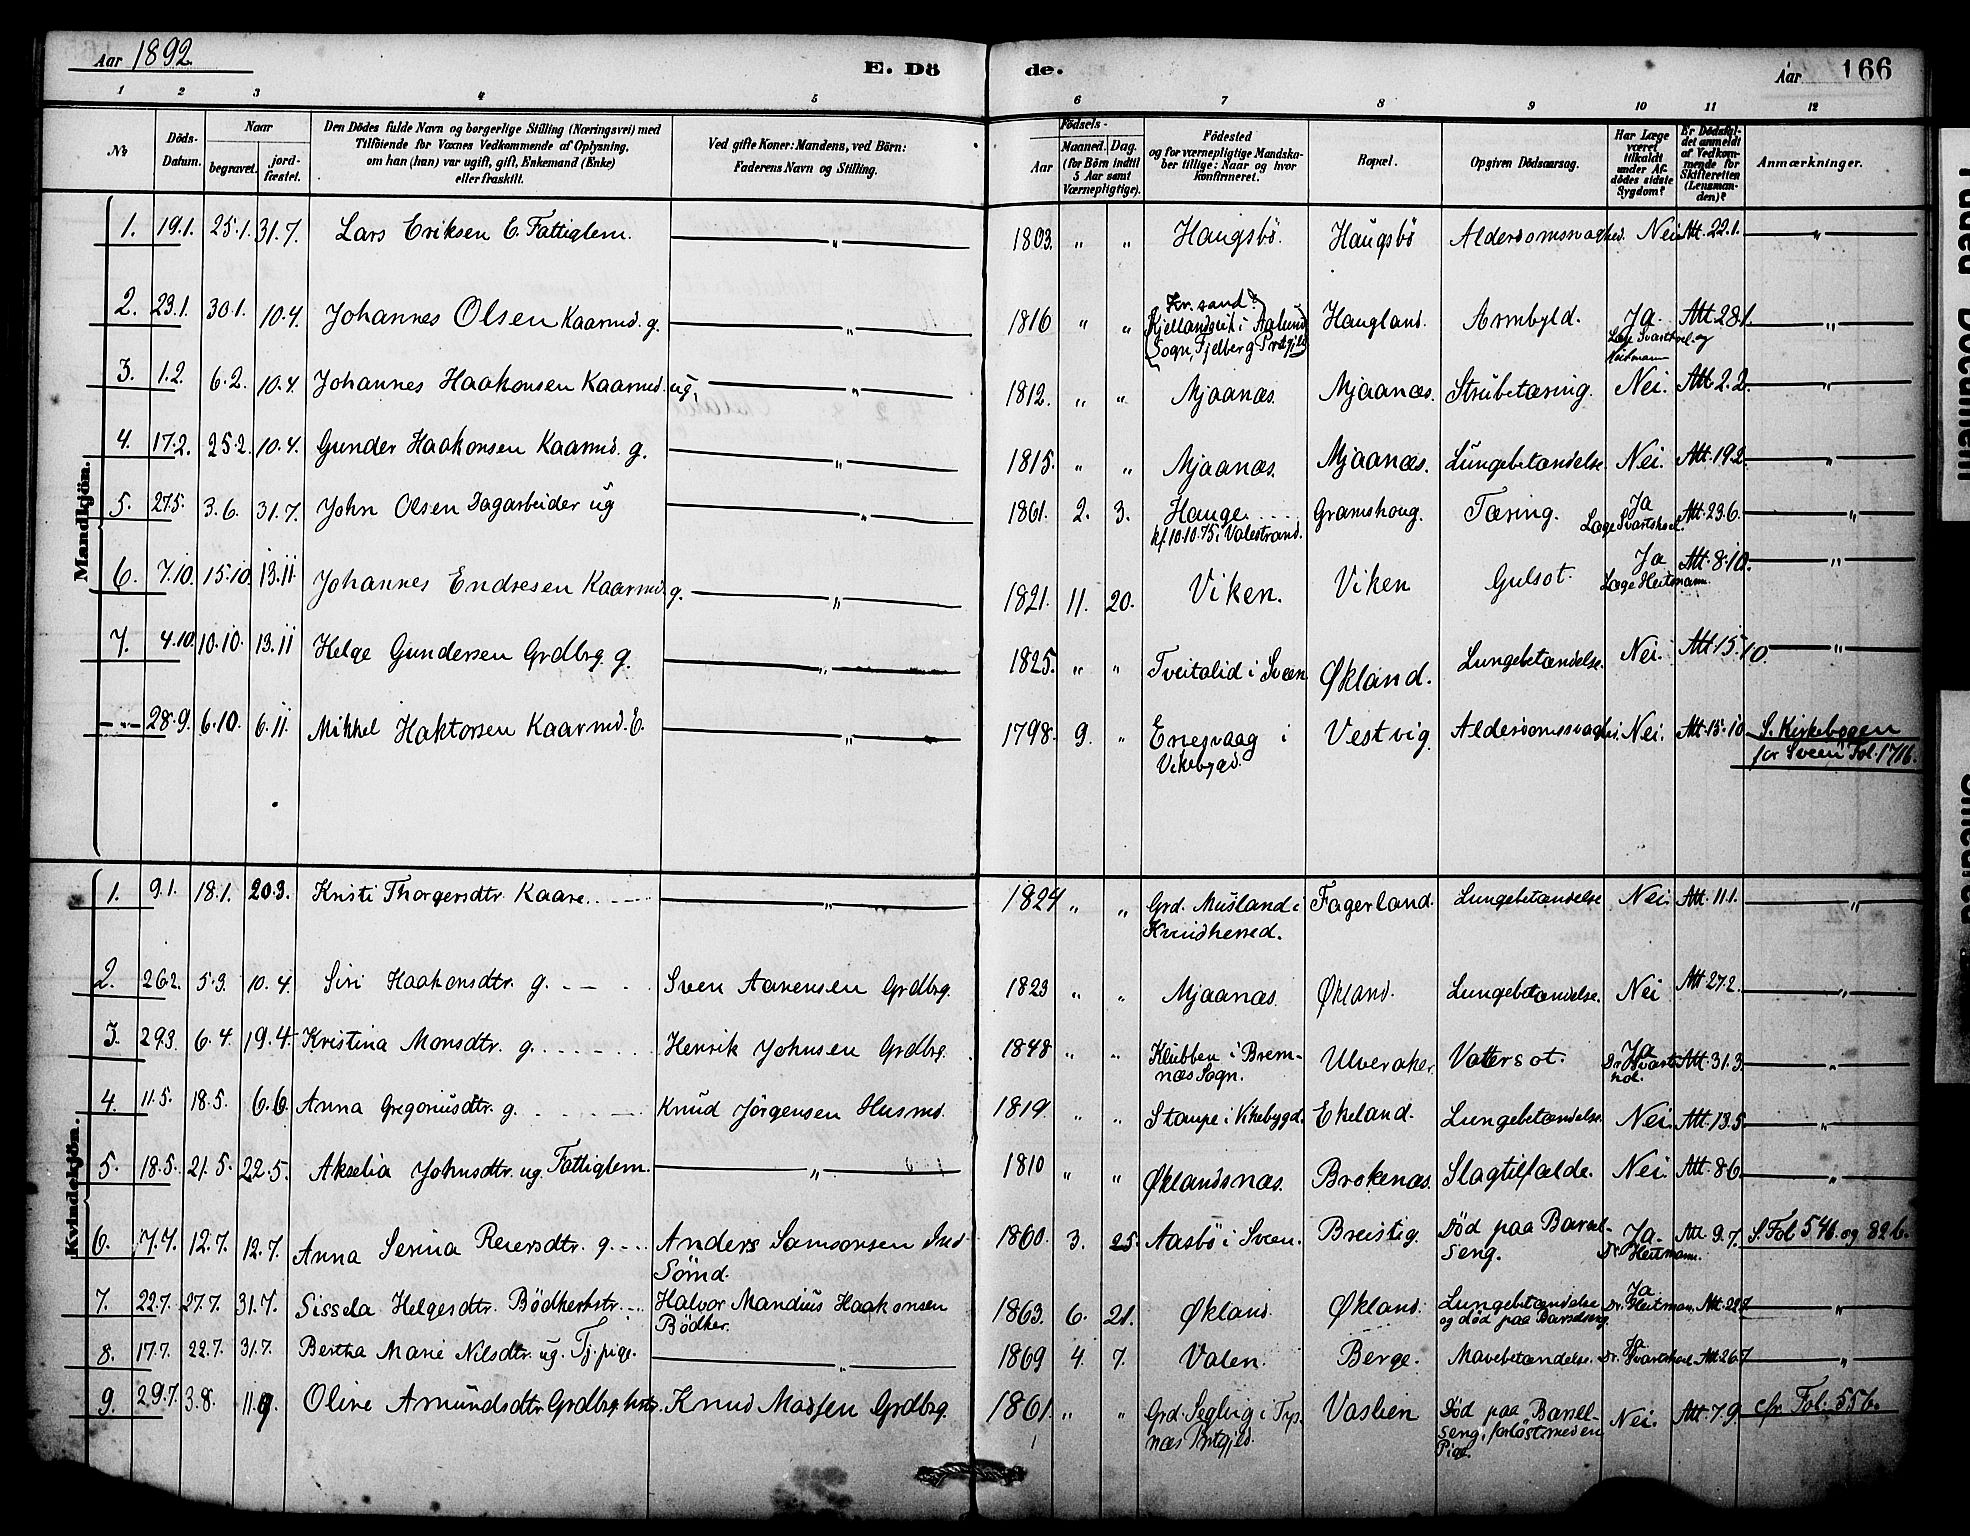 Aar 1892. E. Dö de. Aar 166
1 2 3 4 5 6 7 8 9 10 11 12
No
Döds-Datum.
Naar
begravet. jord-fæstet.
Den Dödes fulde Navn og borgerlige Stilling (Næringsvei) med
Tilföiende for Voxnes Vedkommende af Oplysning,
om han (hun) var ugift, gift, Enkemand (Enke)
eller fraskilt.
Ved gifte Koner: Mandens, ved Börn:
Faderens Navn og Stilling.
Födsels-
Aar
Maaned. Dag.
(for Börn indtil
5 Aar samt
Værnepligtige).
Födested
og for værnepligtige Mandska-
ber tillige: Naar og hvor
konfirmeret.
Bopæl.
Opgiven Dödsaarsag.
Har Læge
været
tilkaldt
under Af-
dödes sidste
Sygdom?
Er Dödsfal-
det anmeldt
af Vedkom-
mende for
Skifteretten
(Lensman-
den)?
Anmærkninger.
Mandkjön.
1. 19.1. 25.1. 31.7. Lars Eriksen E. Fattiglem. „ 1803. „ „ Haugsbö. Haugsbö Alderdomssvaghed. Nei Att. 22.1. „
2. 23.1. 30.1. 10.4. Johannes Olsen Kaarmd. g. „ 1816 „ „ i Aalund Haugland. Armbyld. Ja. Att 28.1. „
Sogn, Fjelberg Prstgjld Læge Svarthoel og
Heitmann
3. 1.2. 6.2. 10.4. Johannes Haakonsen Kaarmd. ug. „ 1812. „ „ Mjaanæs. Mjaanæs. Strubetæring. Nei. Att 2.2. „
4. 17.2. 25.2. 10.4. Gunder Haakonsen Kaarmd. g. „ 1815. „ „ Mjaanæs. Mjaanæs. Lungebetændelse. Nei. Att. 19.2. „
5. 27.5. 3.6. 31.7. John Olsen Dagarbeider ug „ 1861. 2. 3. Hauge. Gramshoug. Tæring. Ja Att. 23.6. „
kf. 10.10.75 i Valestrand. Læge Svarthoel.
6. 7.10. 15.10 13.11. Johannes Endresen Kaarmd. g. „ 1821. 11. 20. Viken. Viken Gulsot. Ja Att. 8.10. „
Læge Heitmann.
7. 4.10. 10.10. 13.11 Helge Gundersen Grdbrg g. „ 1825. „ „ Tveitalid i Sveen Økland. Lungebetændelse. Nei. Att. 15.10. „
28.9. 6.10. 6.11. Mikkel Haktorsen Kaarmd. E. „ 1798. 9. „ Enesvaag i Vestvig. Alderdomssvaghed. Nei. Att. 15.10 S. Kirkebogen
Vikebygd. for Sveen Fol.
Kvindekjön.
1. 9.1. 18.1. 20.3. Kristi Thorgersdtr. Kaare. „ 1824 „ „ Grd. Musland i Fagerland. Lungebetændelse Nei. Att. 11.1. „
Kvindherred.
2. 26.2. 5.3. 10.4. Siri Haakonsdtr. g. Sven Aanensen Grdbrg. 1823 „ „ Mjaanæs. Økland. Lungebetændelse. Nei Att 27.2. „
3. 29.3. 6.4. 19.4. Kristina Monsdtr. g. Henrik Johnsen Grdbrg. 1848 „ „ Klubben i Brem- Ulveraker. Vattersot. Ja Att. 31.3. „
næs Sogn. Dr. Svart-
hol.
4. 11.5. 18.5. 6.6. Anna Gregoriusdtr. g. Knud Jörgensen Husmd. 1819. „ „ Staupe i Vikebygd. Ekeland. Lungebetændelse. Nei. Att. 13.5. „
5. 18.5. 21.5. 22.5. Akselia Johnsdtr. ug. Fattiglem. „ 1810 „ „ Øklandsnæs. Brokenæs. Slagtilfælde. Nei. Att. 8.6. „
6. 7.7. 12.7. 12.7. Anna Serina Reiersdtr. g. Anders Samsonsen Ind- 1860. 3. 25. Aasbö i Sveen. Breistig. Död paa Barsel- Ja. Att 9.7. S. Fol 54b. og 82b.
Sömd. seng. Dr. Heitmann.
7. 22.7. 27.7. 31.7. Sissela Helgesdtr. Bödkerhstr. Halvor Mandius Haakonsen 1863. 6. 21. Økland. Økland. Lungebetændelse Ja Att. 29.7 „
Bödker. og död paa Barselseng. Dr. Heitmann.
8. 17.7. 22.7. 31.7. Bertha Marie Nilsdtr. ug. Tj.pige. „ 1869 4. 7. Valen. Berge. Mavebetændelse. Ja Dr. Svarthoel Att. 26.7 „
9. 29.7. 3.8. 11.9. Oline Amundsdtr. Grdbrg.hstr. Knud Madsen Grdbrg. 1861. „ „ Grd. Seglvig i Tys- Vaslien Död paa Barsel- Nei. Att. 7.9. cfr. Fol. 55b.
næs Prstgjld. seng, forlöst med en
Pige.